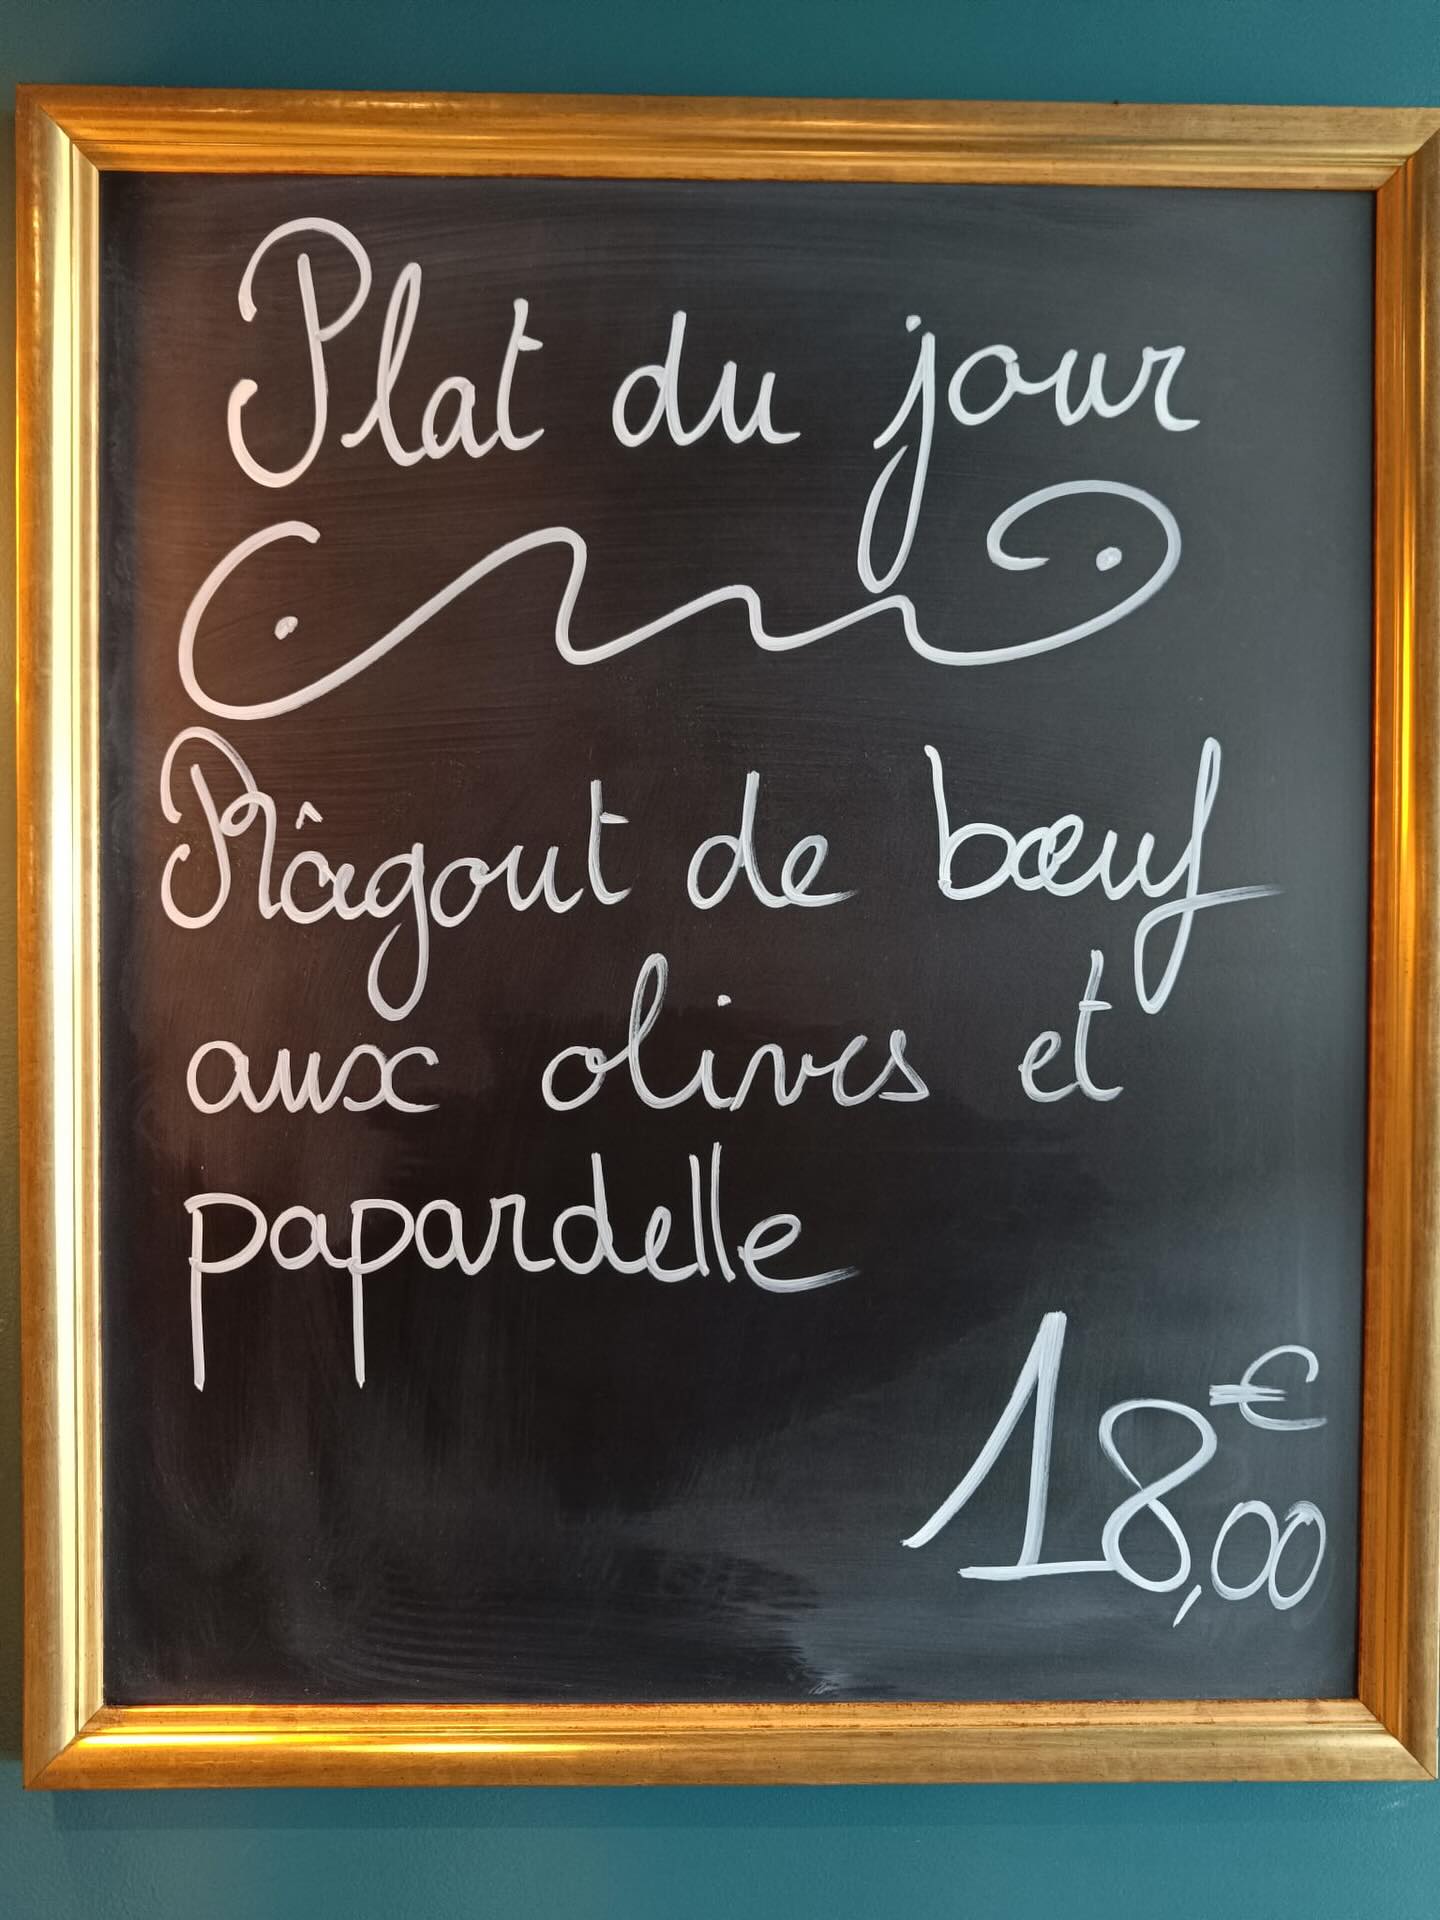 Plat du jour
Râgout de bœuf
aux olives et
papardelle
18,00€